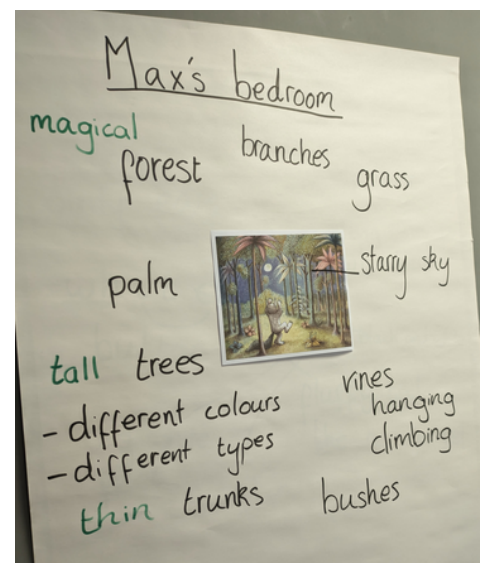 Max's bedroom
magical
forest
branches
grass
palm
starry sky
tall trees
- different colours
- different types
thin trunks
vines
hanging
climbing
bushes